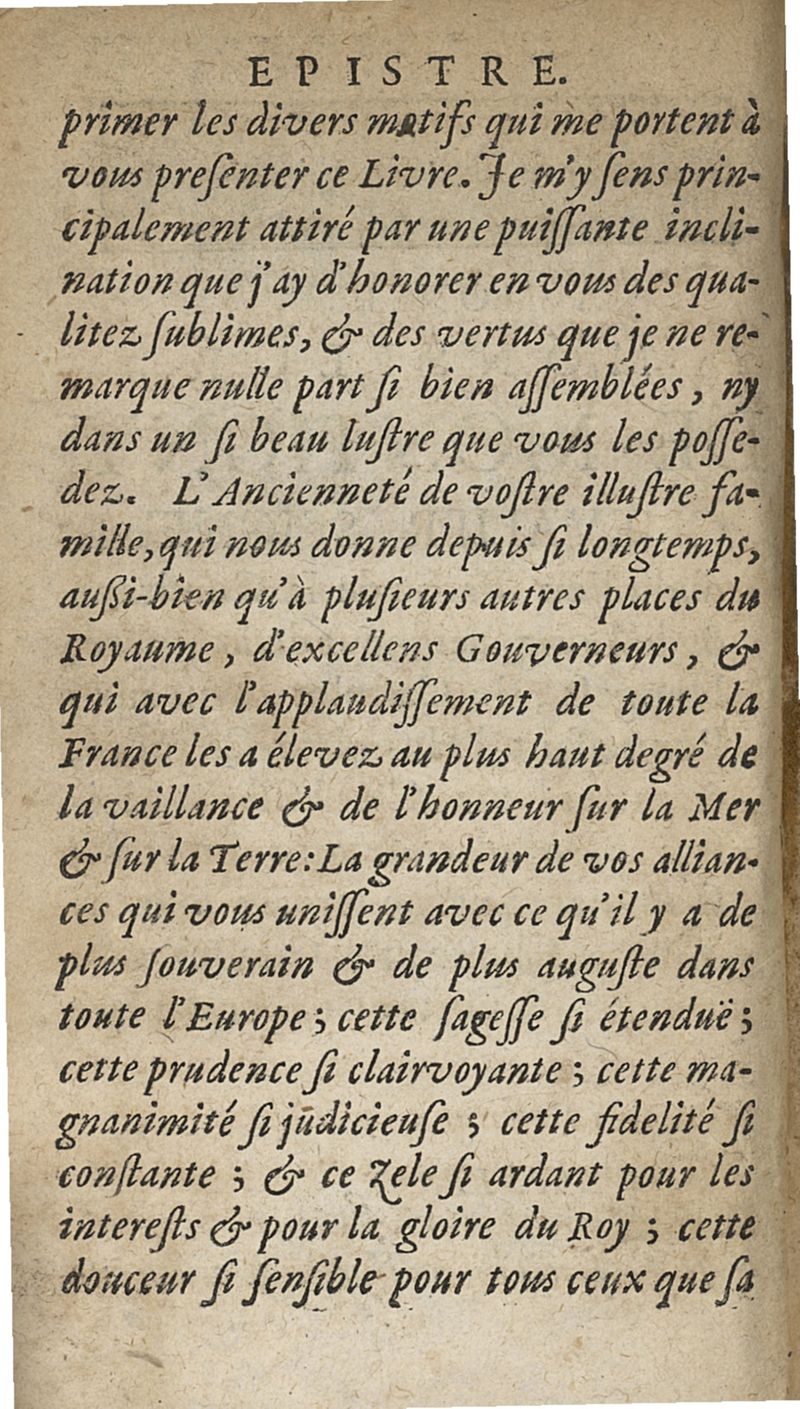 EPISTRE.
primer les divers motifs qui me portent à
vous preſenter ce Livre. Je m'y ſens prin-
cipalement attiré par une puiſſante incli-
nation que j'ay d'honorer en vous des qua-
litez ſublimes, & des vertus que je ne re-
marque nulle part ſi bien aſſemblées, ny
dans un ſi beau luſtre que vous les poſſe-
dez. L'Ancienneté de voſtre illuſtre fa-
mille, qui nous donne depuis ſi longtemps,
auſſi-bien qu'à pluſieurs autres places du
Royaume, d'excellens Gouverneurs, &
qui avec l'applaudiſſement de toute la
France les a élevez au plus haut degré de
la vaillance & de l'honneur ſur la Mer
& ſur la Terre: La grandeur de vos allian-
ces qui vous uniſſent avec ce qu'il y a de
plus ſouverain & de plus auguſte dans
toute l'Europe; cette ſageſſe ſi étenduë;
cette prudence ſi clairvoyante; cette ma-
gnanimité ſi judicieuſe; cette fidelité ſi
conſtante; & ce Zele ſi ardant pour les
intereſts & pour la gloire du Roy; cette
douceur ſi ſenſible pour tous ceux que ſa